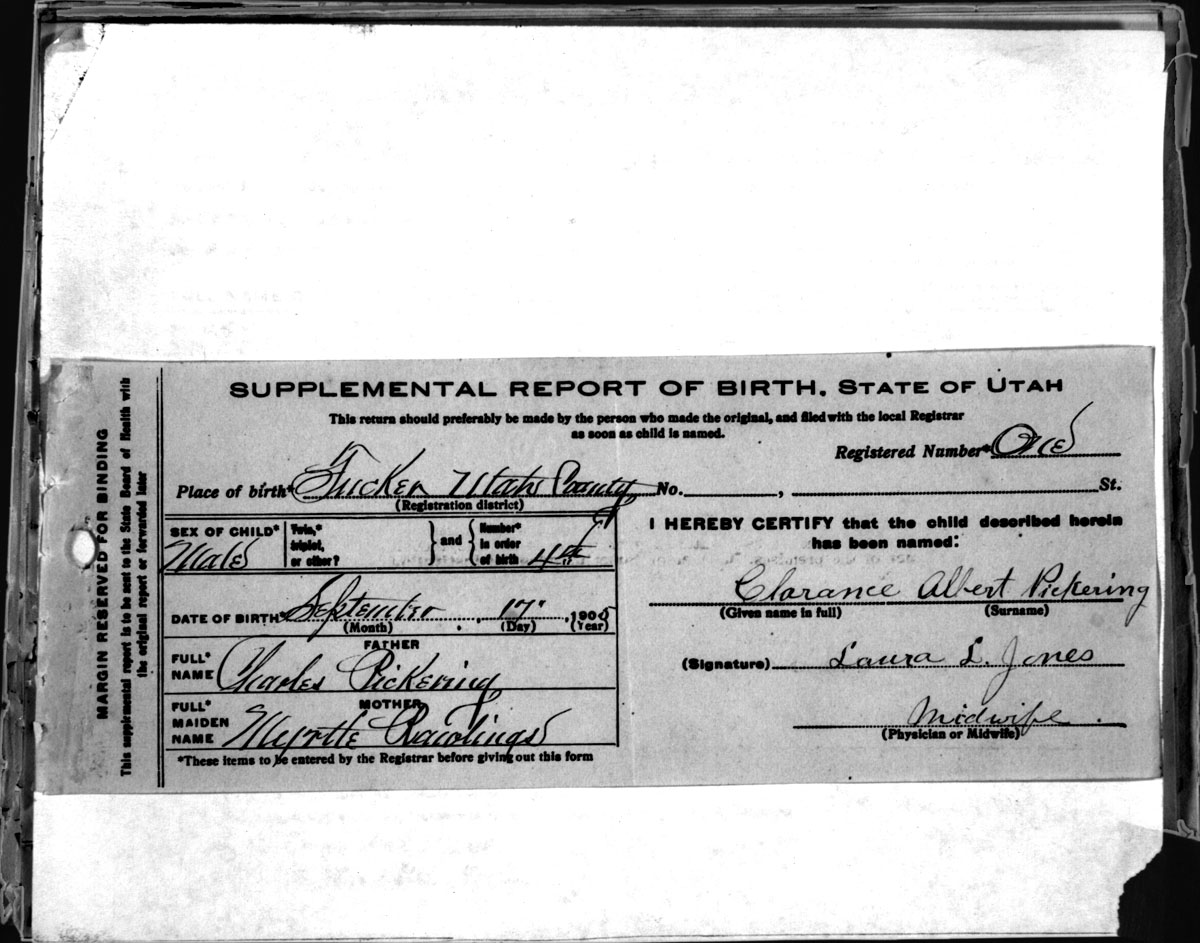 SUPPLEMENTAL REPORT OF BIRTH. STATE OF UTAH
This return should preferably be made by the person who made the original, and filed with the local Registrar
as soon as child is named.
Registered Number* One
Place of birth* Tucker Utah County No. , St.
(Registration district)
SEX OF CHILD* Male
Twin,* triplet, or other?
and
Number* in order of birth 4th
DATE OF BIRTH September 17" , 190
(Month) (Day) (Year)
FATHER
FULL* NAME Charles Pickering
MOTHER
FULL* MAIDEN NAME Myrtle Rawlings
*These items to be entered by the Registrar before giving out this form
I HEREBY CERTIFY that the child described herein
has been named:
Clarance Albert Pickering
(Given name in full) (Surname)
(Signature) Laura L. Jones
Midwife
(Physician or Midwife)
MARGIN RESERVED FOR BINDING
This supplemental report is to be sent to the State Board of Health with
the original report or forwarded later